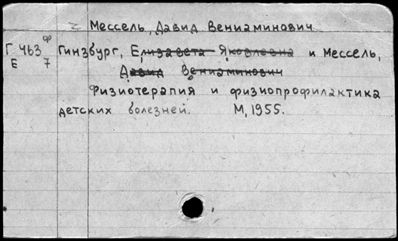 Мессель, Давид Вениаминович
Г 463 ф Гинзбург, Елизавета Яковлевна и Мессель,
Е 7 Давид Вениаминович
Физиотерапия и физиопрофилактика
детских болезней. М, 1955.